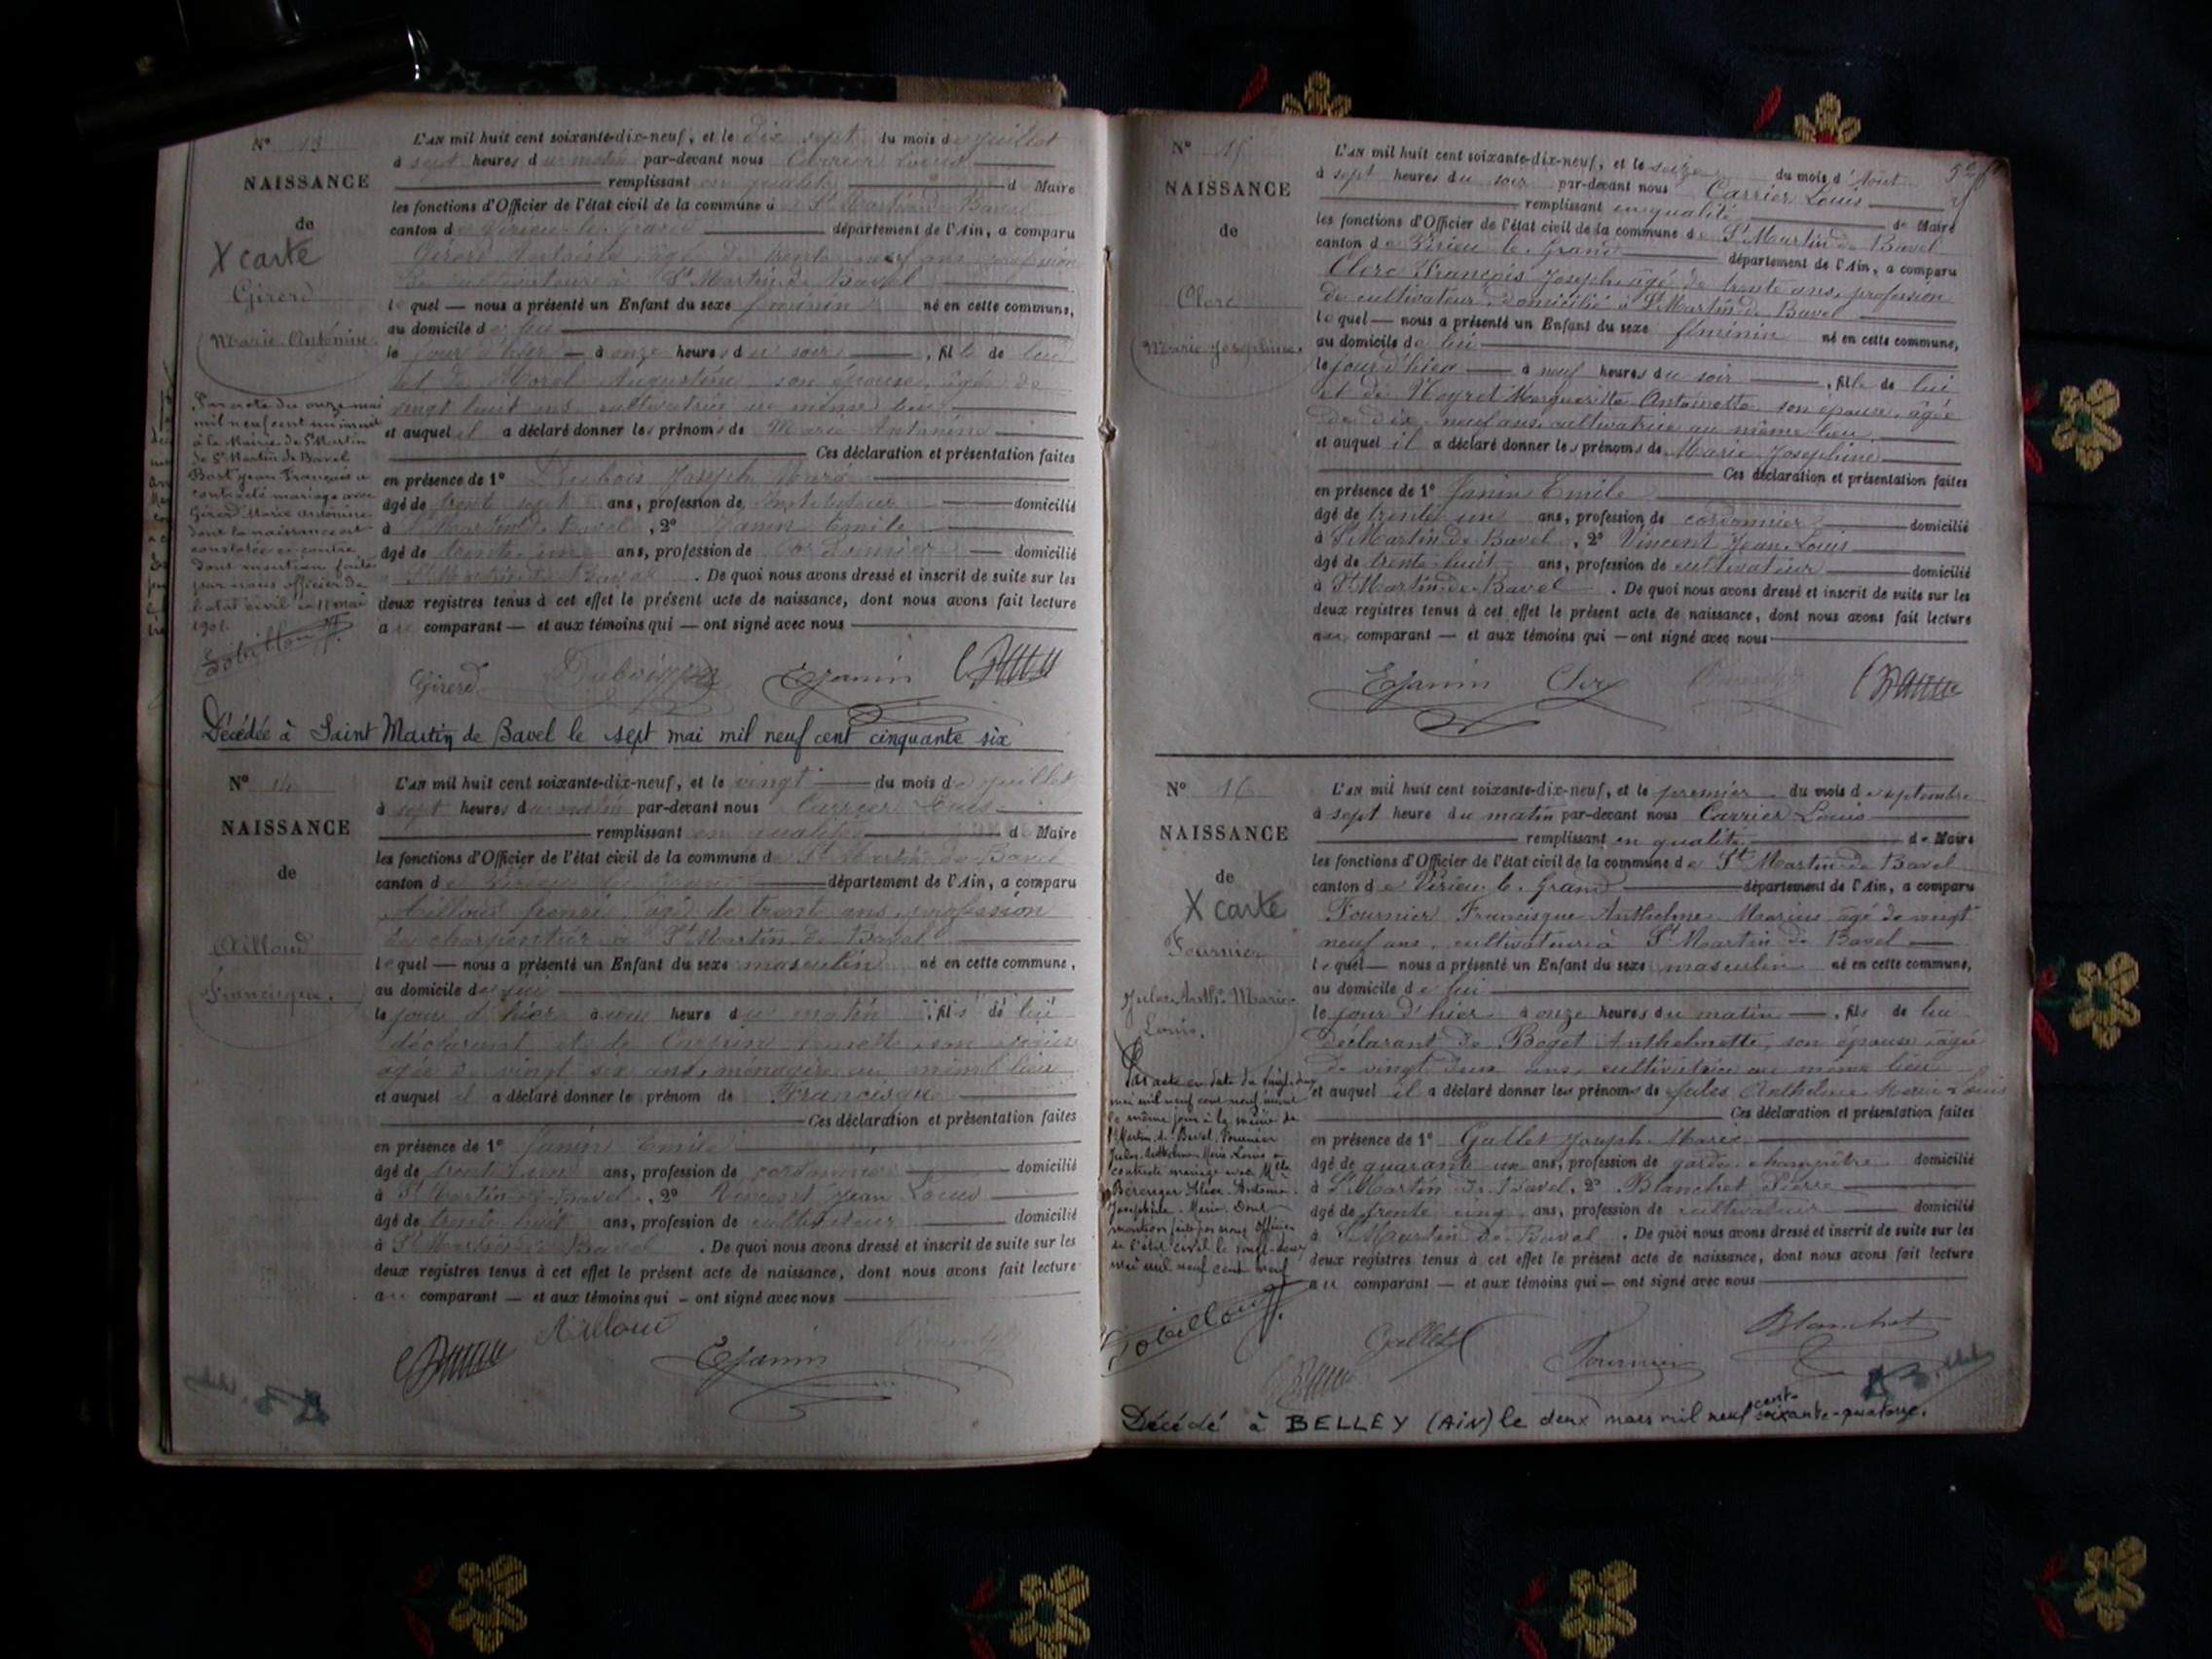 N° 13
NAISSANCE
de
X carte
Girerd
Marie Antonine
Par acte du onze mai
mil neuf cent un inscrit
à la Mairie de St Martin
de St Martin de Bavel
Bart Jean François a
contracté mariage avec
Girerd Marie Antonine
dont la naissance est
constatée ci-contre
dont mention faite
par nous officier de
l'état civil le 11 mai
1901.
L'AN mil huit cent soixante-dix-neuf, et le dix sept du mois de juillet
à sept heures du matin par-devant nous Carrier Louis
remplissant en qualité d Maire
les fonctions d'Officier de l'état civil de la commune d St Martin de Bavel
canton de Virieu le Grand département de l'Ain, a comparu
Girerd Antoine âgé de trente neuf ans profession
de cultivateur à St Martin de Bavel
lequel — nous a présenté un Enfant du sexe féminin né en cette commune,
au domicile de lui
le jour d'hier — à onze heures du soir , fille de lui
et de Morel Augustine son épouse, âgée de
vingt huit ans, cultivatrice au même lieu
et auquel il a déclaré donner les prénoms de Marie Antonine
Ces déclaration et présentation faites
en présence de 1° Dubois Joseph
âgé de trente sept ans, profession de instituteur domicilié
à St Martin de Bavel, 2° Janin Emile
âgé de trente un ans, profession de cordonnier — domicilié
à St Martin de Bavel. De quoi nous avons dressé et inscrit de suite sur les
deux registres tenus à cet effet le présent acte de naissance, dont nous avons fait lecture
au comparant — et aux témoins qui — ont signé avec nous
Girerd Dubois EJanin
Décédée à Saint Martin de Bavel le sept mai mil neuf cent cinquante six
N° 14
NAISSANCE
de
Ailloud
Francisque.
L'AN mil huit cent soixante-dix-neuf, et le vingt du mois de juillet
à sept heures du matin par-devant nous Carrier Louis
remplissant en qualité d Maire
les fonctions d'Officier de l'état civil de la commune de St Martin de Bavel
canton de Virieu le Grand département de l'Ain, a comparu
Ailloud âgé de trente ans, profession
de charpentier à St Martin de Bavel
lequel — nous a présenté un Enfant du sexe masculin né en cette commune,
au domicile de lui
le jour d'hier à une heure du matin , fils de lui
déclarant et de son épouse
âgée de vingt six ans, ménagère au même lieu
et auquel il a déclaré donner le prénom de Francisque
Ces déclaration et présentation faites
en présence de 1° Janin Emile
âgé de trente un ans, profession de cordonnier domicilié
à St Martin de Bavel, 2° Vincent Jean Louis
âgé de trente huit ans, profession de cultivateur domicilié
à St Martin de Bavel. De quoi nous avons dressé et inscrit de suite sur les
deux registres tenus à cet effet le présent acte de naissance, dont nous avons fait lecture
au comparant — et aux témoins qui — ont signé avec nous
Ailloud EJanin
N° 15
NAISSANCE
de
Clerc
Marie Josephine.
L'AN mil huit cent soixante-dix-neuf, et le seize du mois d'Aout
à sept heures du soir par-devant nous Carrier Louis
remplissant en qualité de Maire
les fonctions d'Officier de l'état civil de la commune de St Martin de Bavel
canton de Virieu le Grand département de l'Ain, a comparu
Clerc François Joseph âgé de trente ans, profession
de cultivateur domicilié à St Martin de Bavel
lequel — nous a présenté un Enfant du sexe féminin né en cette commune,
au domicile de lui
le jour d'hier — à neuf heures du soir , fille de lui
et de Neyret Marguerite Antoinette son épouse, âgée
de dix neuf ans, cultivatrice au même lieu
et auquel il a déclaré donner les prénoms de Marie Josephine
Ces déclaration et présentation faites
en présence de 1° Janin Emile
âgé de trente un ans, profession de cordonnier domicilié
à St Martin de Bavel, 2° Vincent Jean Louis
âgé de trente huit ans, profession de cultivateur domicilié
à St Martin de Bavel. De quoi nous avons dressé et inscrit de suite sur les
deux registres tenus à cet effet le présent acte de naissance, dont nous avons fait lecture
au comparant — et aux témoins qui — ont signé avec nous
EJanin Clerc
N° 16
NAISSANCE
de
X carte
Fournier
Jules Anth. Marie
Louis.
Par acte en date du vingt-deux
mai mil neuf cent neuf
le même jour à la mairie de
St Martin de Bavel, Fournier
Jules Anthelme Marie Louis a
contracté mariage avec Mlle
Bérenger Antonia
Joséphine Marie. Dont
mention faite par nous Officier
de l'état civil le vingt-deux
mai mil neuf cent neuf
L'AN mil huit cent soixante-dix-neuf, et le premier du mois de septembre
à sept heure du matin par-devant nous Carrier Louis
remplissant en qualité de Maire
les fonctions d'Officier de l'état civil de la commune de St Martin de Bavel
canton de Virieu le Grand département de l'Ain, a comparu
Fournier Francisque Anthelme Marius âgé de vingt
neuf ans, cultivateur à St Martin de Bavel
lequel — nous a présenté un Enfant du sexe masculin né en cette commune,
au domicile de lui
le jour d'hier à onze heures du matin — , fils de lui
déclarant de Boget Anthelmette, son épouse âgée
de vingt deux ans, cultivatrice au même lieu
et auquel il a déclaré donner les prénoms de Jules Anthelme Marie Louis
Ces déclaration et présentation faites
en présence de 1° Gallet Joseph Marie
âgé de quarante un ans, profession de garde champêtre domicilié
à St Martin de Bavel, 2° Blanchet Pierre
âgé de trente cinq ans, profession de cultivateur domicilié
à St Martin de Bavel. De quoi nous avons dressé et inscrit de suite sur les
deux registres tenus à cet effet le présent acte de naissance, dont nous avons fait lecture
au comparant — et aux témoins qui — ont signé avec nous
Gallet Fournier Blanchet
Décédé à BELLEY (Ain) le deux mars mil neuf cent soixante-quatorze.